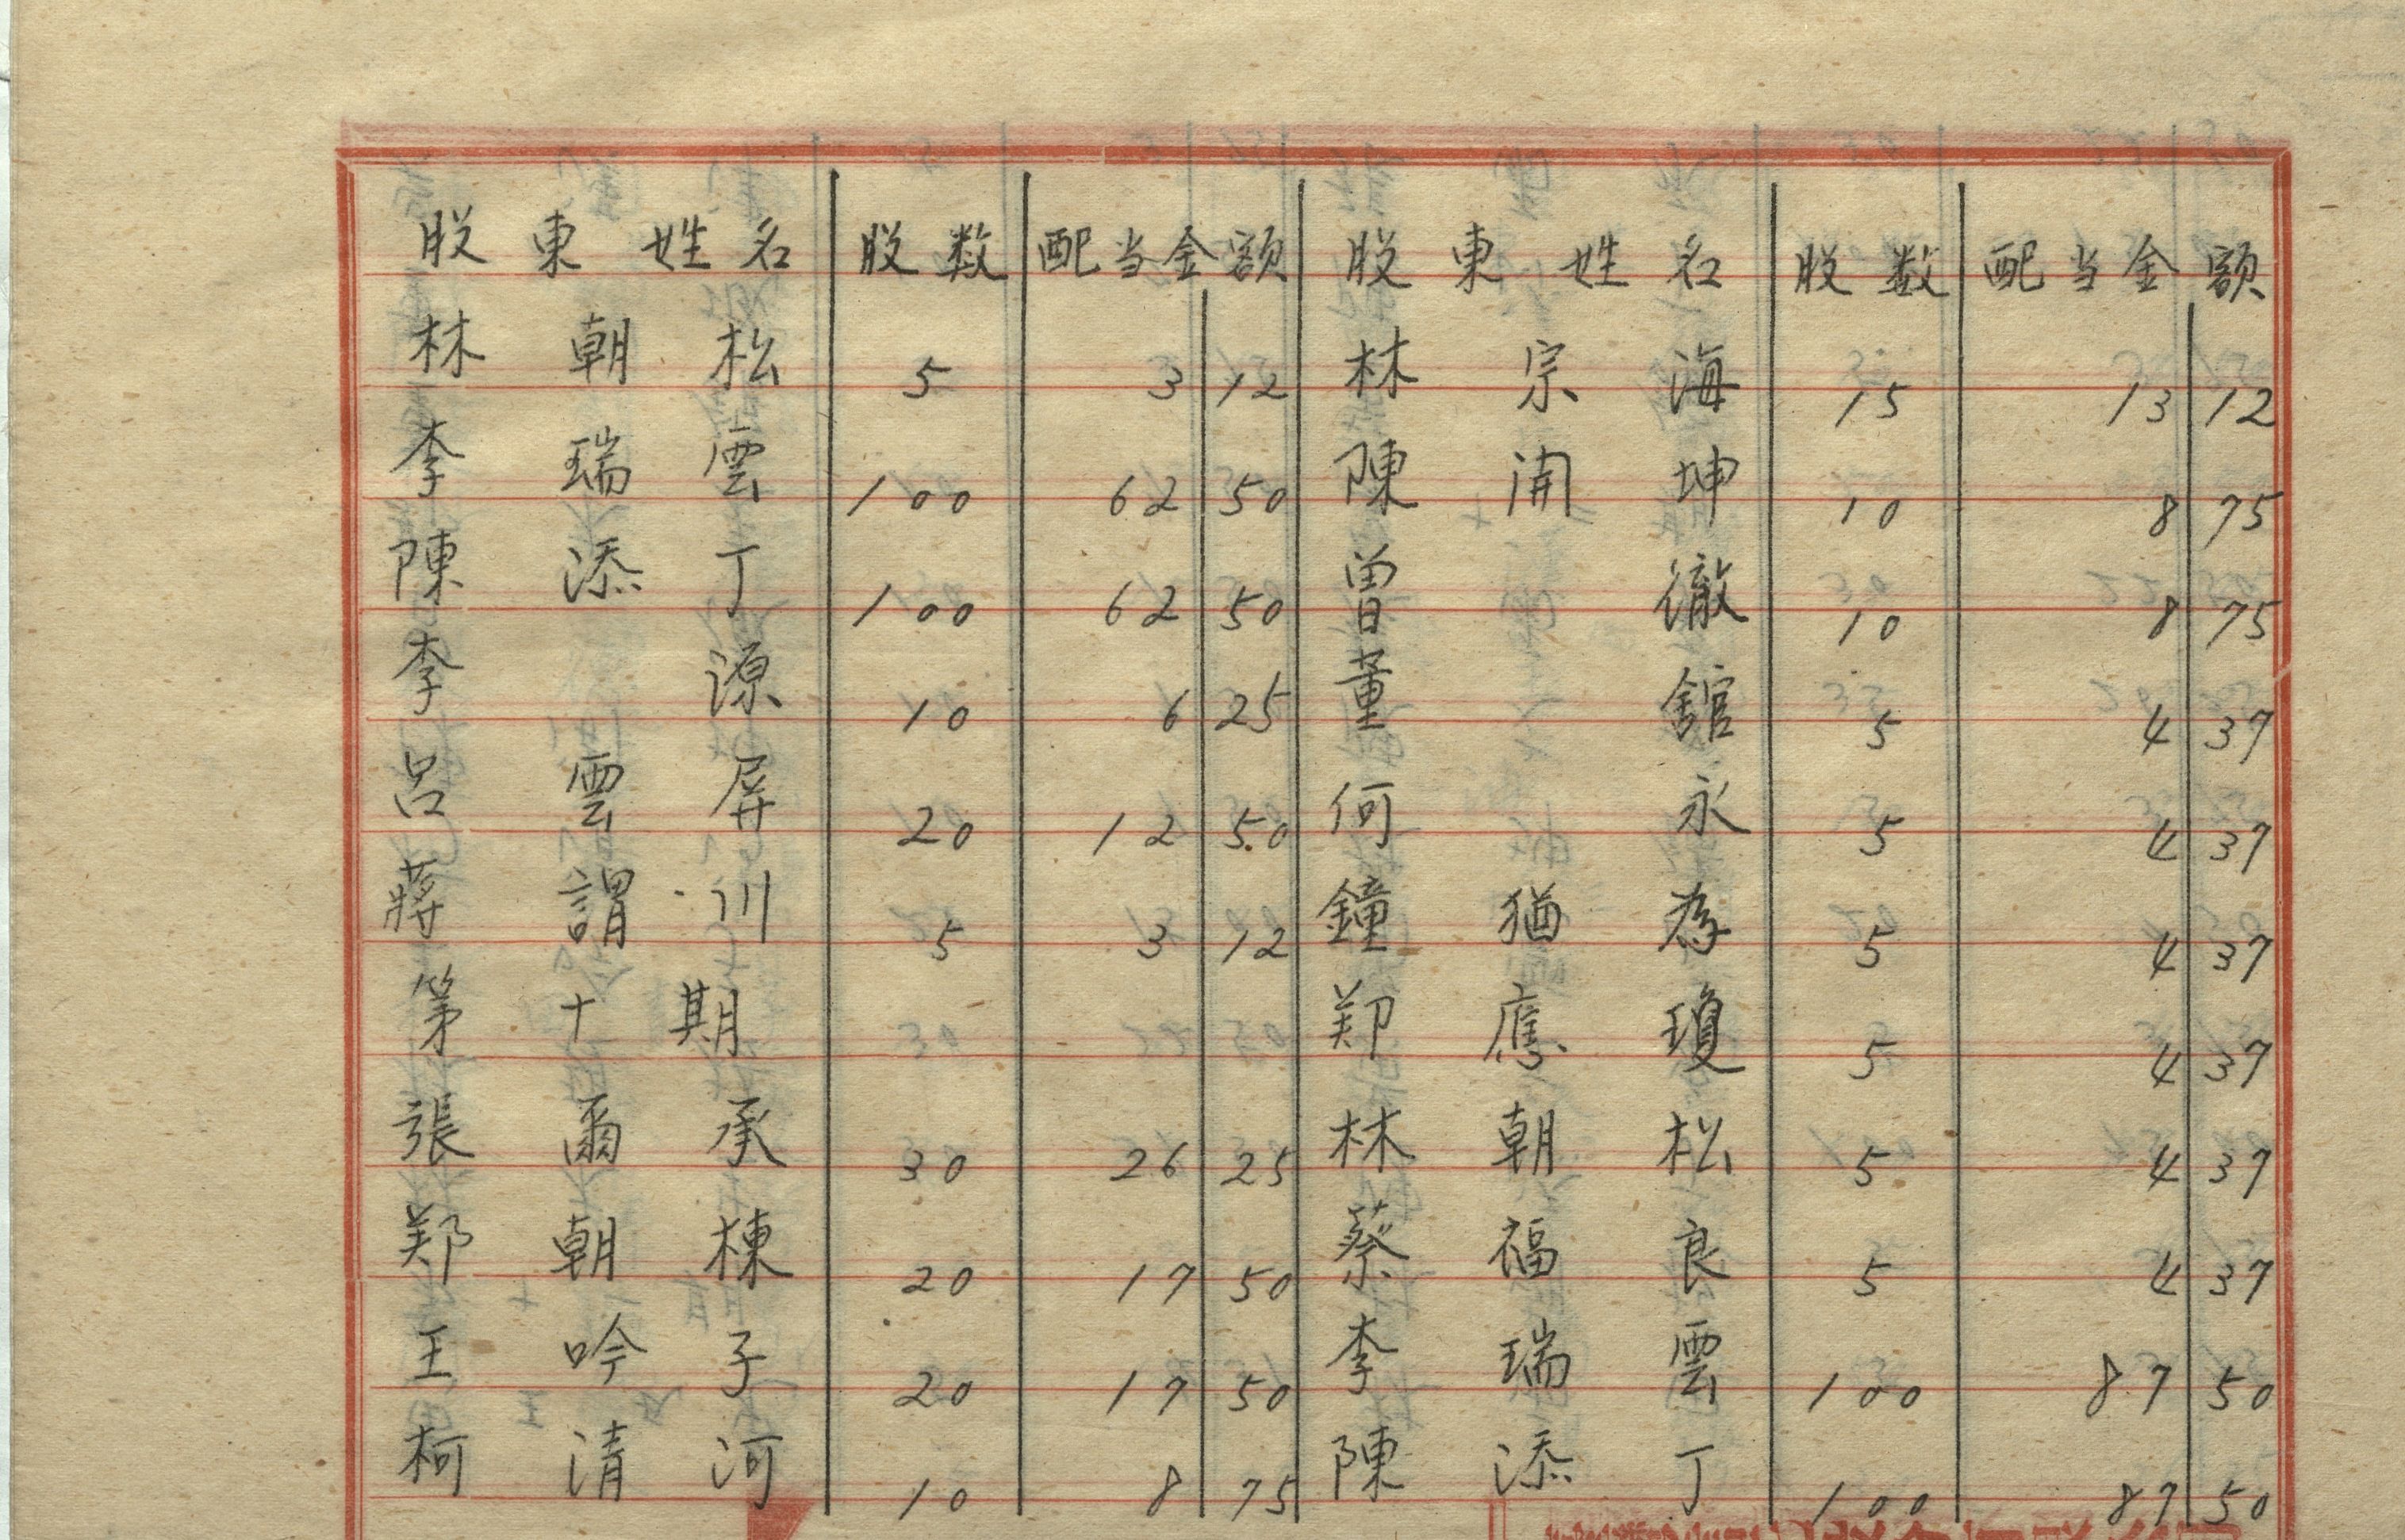 股東姓名 股数 配当金額 股東姓名 股数 配当金額
林朝松 5 3 12 林宗海 15 13 12
李瑞雲 100 62 50 陳開坤 10 8 75
陳添丁 100 62 50 曽徹 10 8 75
李源 10 6 25 董錧 5 4 37
呂雲屏 20 12 50 何永 5 4 37
蔣謂川 5 3 12 鐘猶為 5 4 37
第十期 郑應瓊 5 4 37
張爾承 30 26 25 林朝松 5 4 37
郑朝棟 20 17 50 蔡福良 5 4 37
王吟子 20 17 50 李瑞雲 100 87 50
柯清河 10 8 75 陳添丁 100 87 50